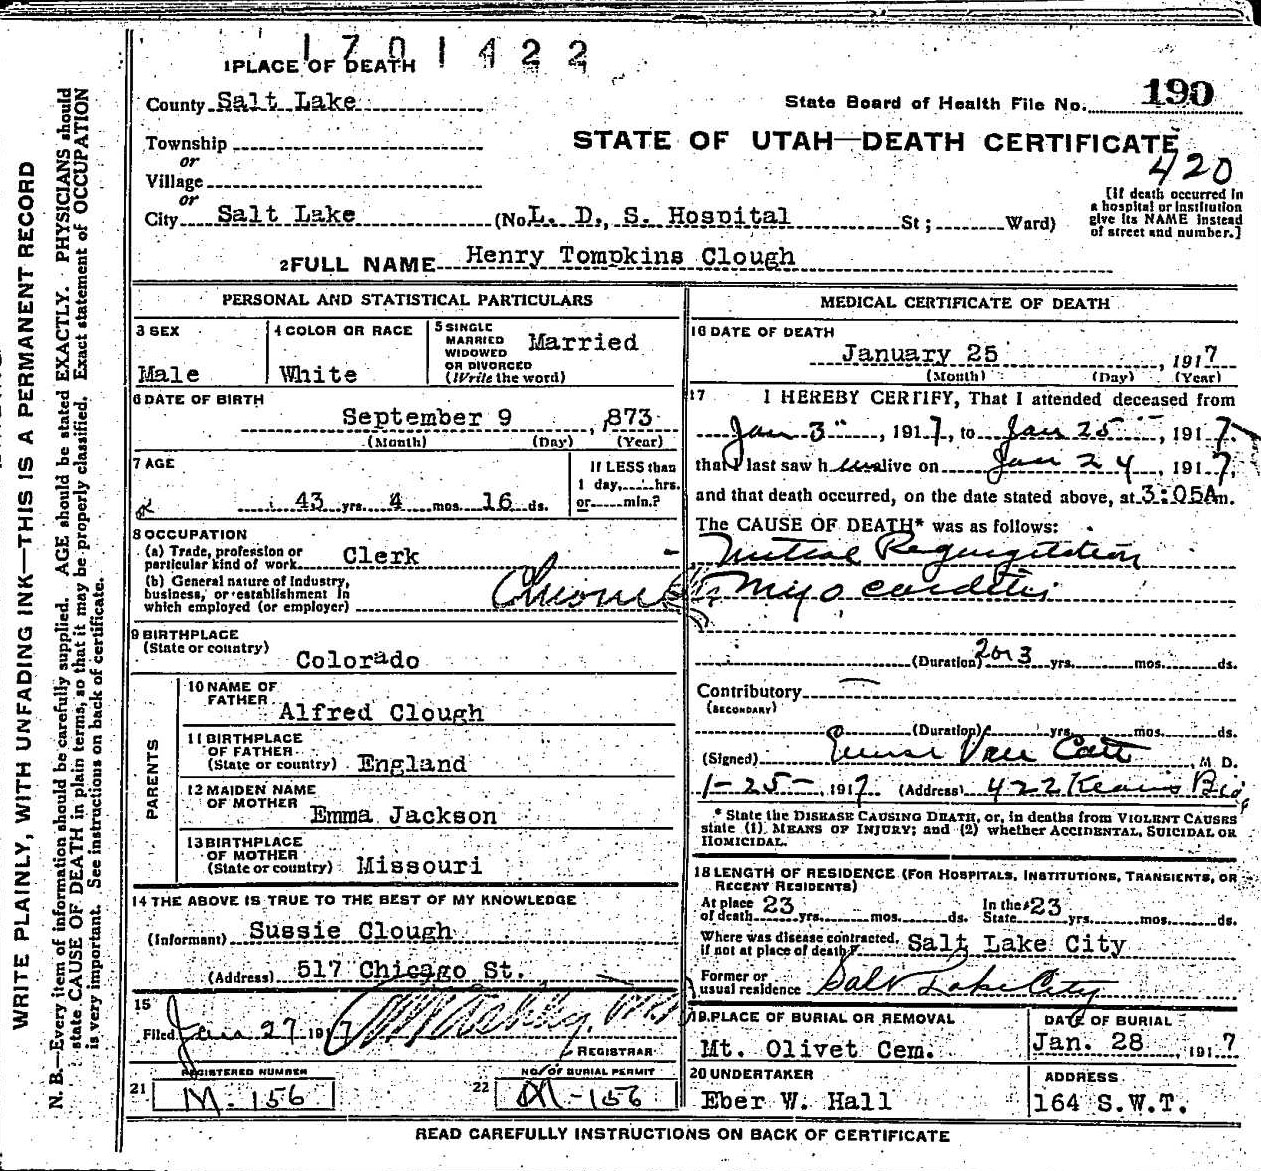 1701422
1 PLACE OF DEATH
County Salt Lake
State Board of Health File No. 190
Township
or
Village
or
STATE OF UTAH—DEATH CERTIFICATE
420
[If death occurred in
a hospital or institution
give its NAME instead
of street and number.]
City Salt Lake (No. L. D. S. Hospital St; Ward)
2 FULL NAME Henry Tompkins Clough
PERSONAL AND STATISTICAL PARTICULARS
3 SEX
Male
4 COLOR OR RACE
White
5 SINGLE
MARRIED
WIDOWED
OR DIVORCED
(Write the word)
Married
6 DATE OF BIRTH
September 9, 1873
(Month) (Day) (Year)
7 AGE
43 yrs. 4 mos. 16 ds.
If LESS than
1 day, hrs.
or min.?
8 OCCUPATION
(a) Trade, profession or
particular kind of work Clerk
(b) General nature of industry,
business, or establishment in
which employed (or employer)
9 BIRTHPLACE
(State or country)
Colorado
PARENTS
10 NAME OF
FATHER
Alfred Clough
11 BIRTHPLACE
OF FATHER
(State or country) England
12 MAIDEN NAME
OF MOTHER
Emma Jackson
13 BIRTHPLACE
OF MOTHER
(State or country) Missouri
14 THE ABOVE IS TRUE TO THE BEST OF MY KNOWLEDGE
(Informant) Sussie Clough
(Address) 517 Chicago St.
15
Filed Jan 27 1917
REGISTRAR
REGISTERED NUMBER
21 M-156
NO. OF BURIAL PERMIT
22 M-156
MEDICAL CERTIFICATE OF DEATH
16 DATE OF DEATH
January 25, 1917
(Month) (Day) (Year)
17 I HEREBY CERTIFY, That I attended deceased from
Jan 3, 1917, to Jan 25, 1917,
that I last saw h alive on Jan 24, 1917,
and that death occurred, on the date stated above, at 3:05Am.
The CAUSE OF DEATH* was as follows:
Mitral Regurgitation
Chronic Myocarditis
(Duration) 2 or 3 yrs. mos. ds.
Contributory
(SECONDARY)
(Duration) yrs. mos. ds.
(Signed) Van Cott, M D.
1-25-, 1917 (Address) 422 Kearns Bldg
* State the DISEASE CAUSING DEATH, or, in deaths from VIOLENT CAUSES
state (1) MEANS OF INJURY; and (2) whether ACCIDENTAL, SUICIDAL OR
HOMICIDAL.
18 LENGTH OF RESIDENCE (FOR HOSPITALS, INSTITUTIONS, TRANSIENTS, OR
RECENT RESIDENTS)
At place 23 In the 23
of death yrs. mos. ds. State yrs. mos. ds.
Where was disease contracted,
if not at place of death? Salt Lake City
Former or
usual residence Salt Lake City
19 PLACE OF BURIAL OR REMOVAL
Mt. Olivet Cem.
DATE OF BURIAL
Jan. 28, 1917
20 UNDERTAKER
Eber W. Hall
ADDRESS
164 S.W.T.
READ CAREFULLY INSTRUCTIONS ON BACK OF CERTIFICATE
WRITE PLAINLY, WITH UNFADING INK—THIS IS A PERMANENT RECORD
N. B.—Every item of information should be carefully supplied. AGE should be stated EXACTLY. PHYSICIANS should
state CAUSE OF DEATH in plain terms, so that it may be properly classified. Exact statement of OCCUPATION
is very important. See instructions on back of certificate.